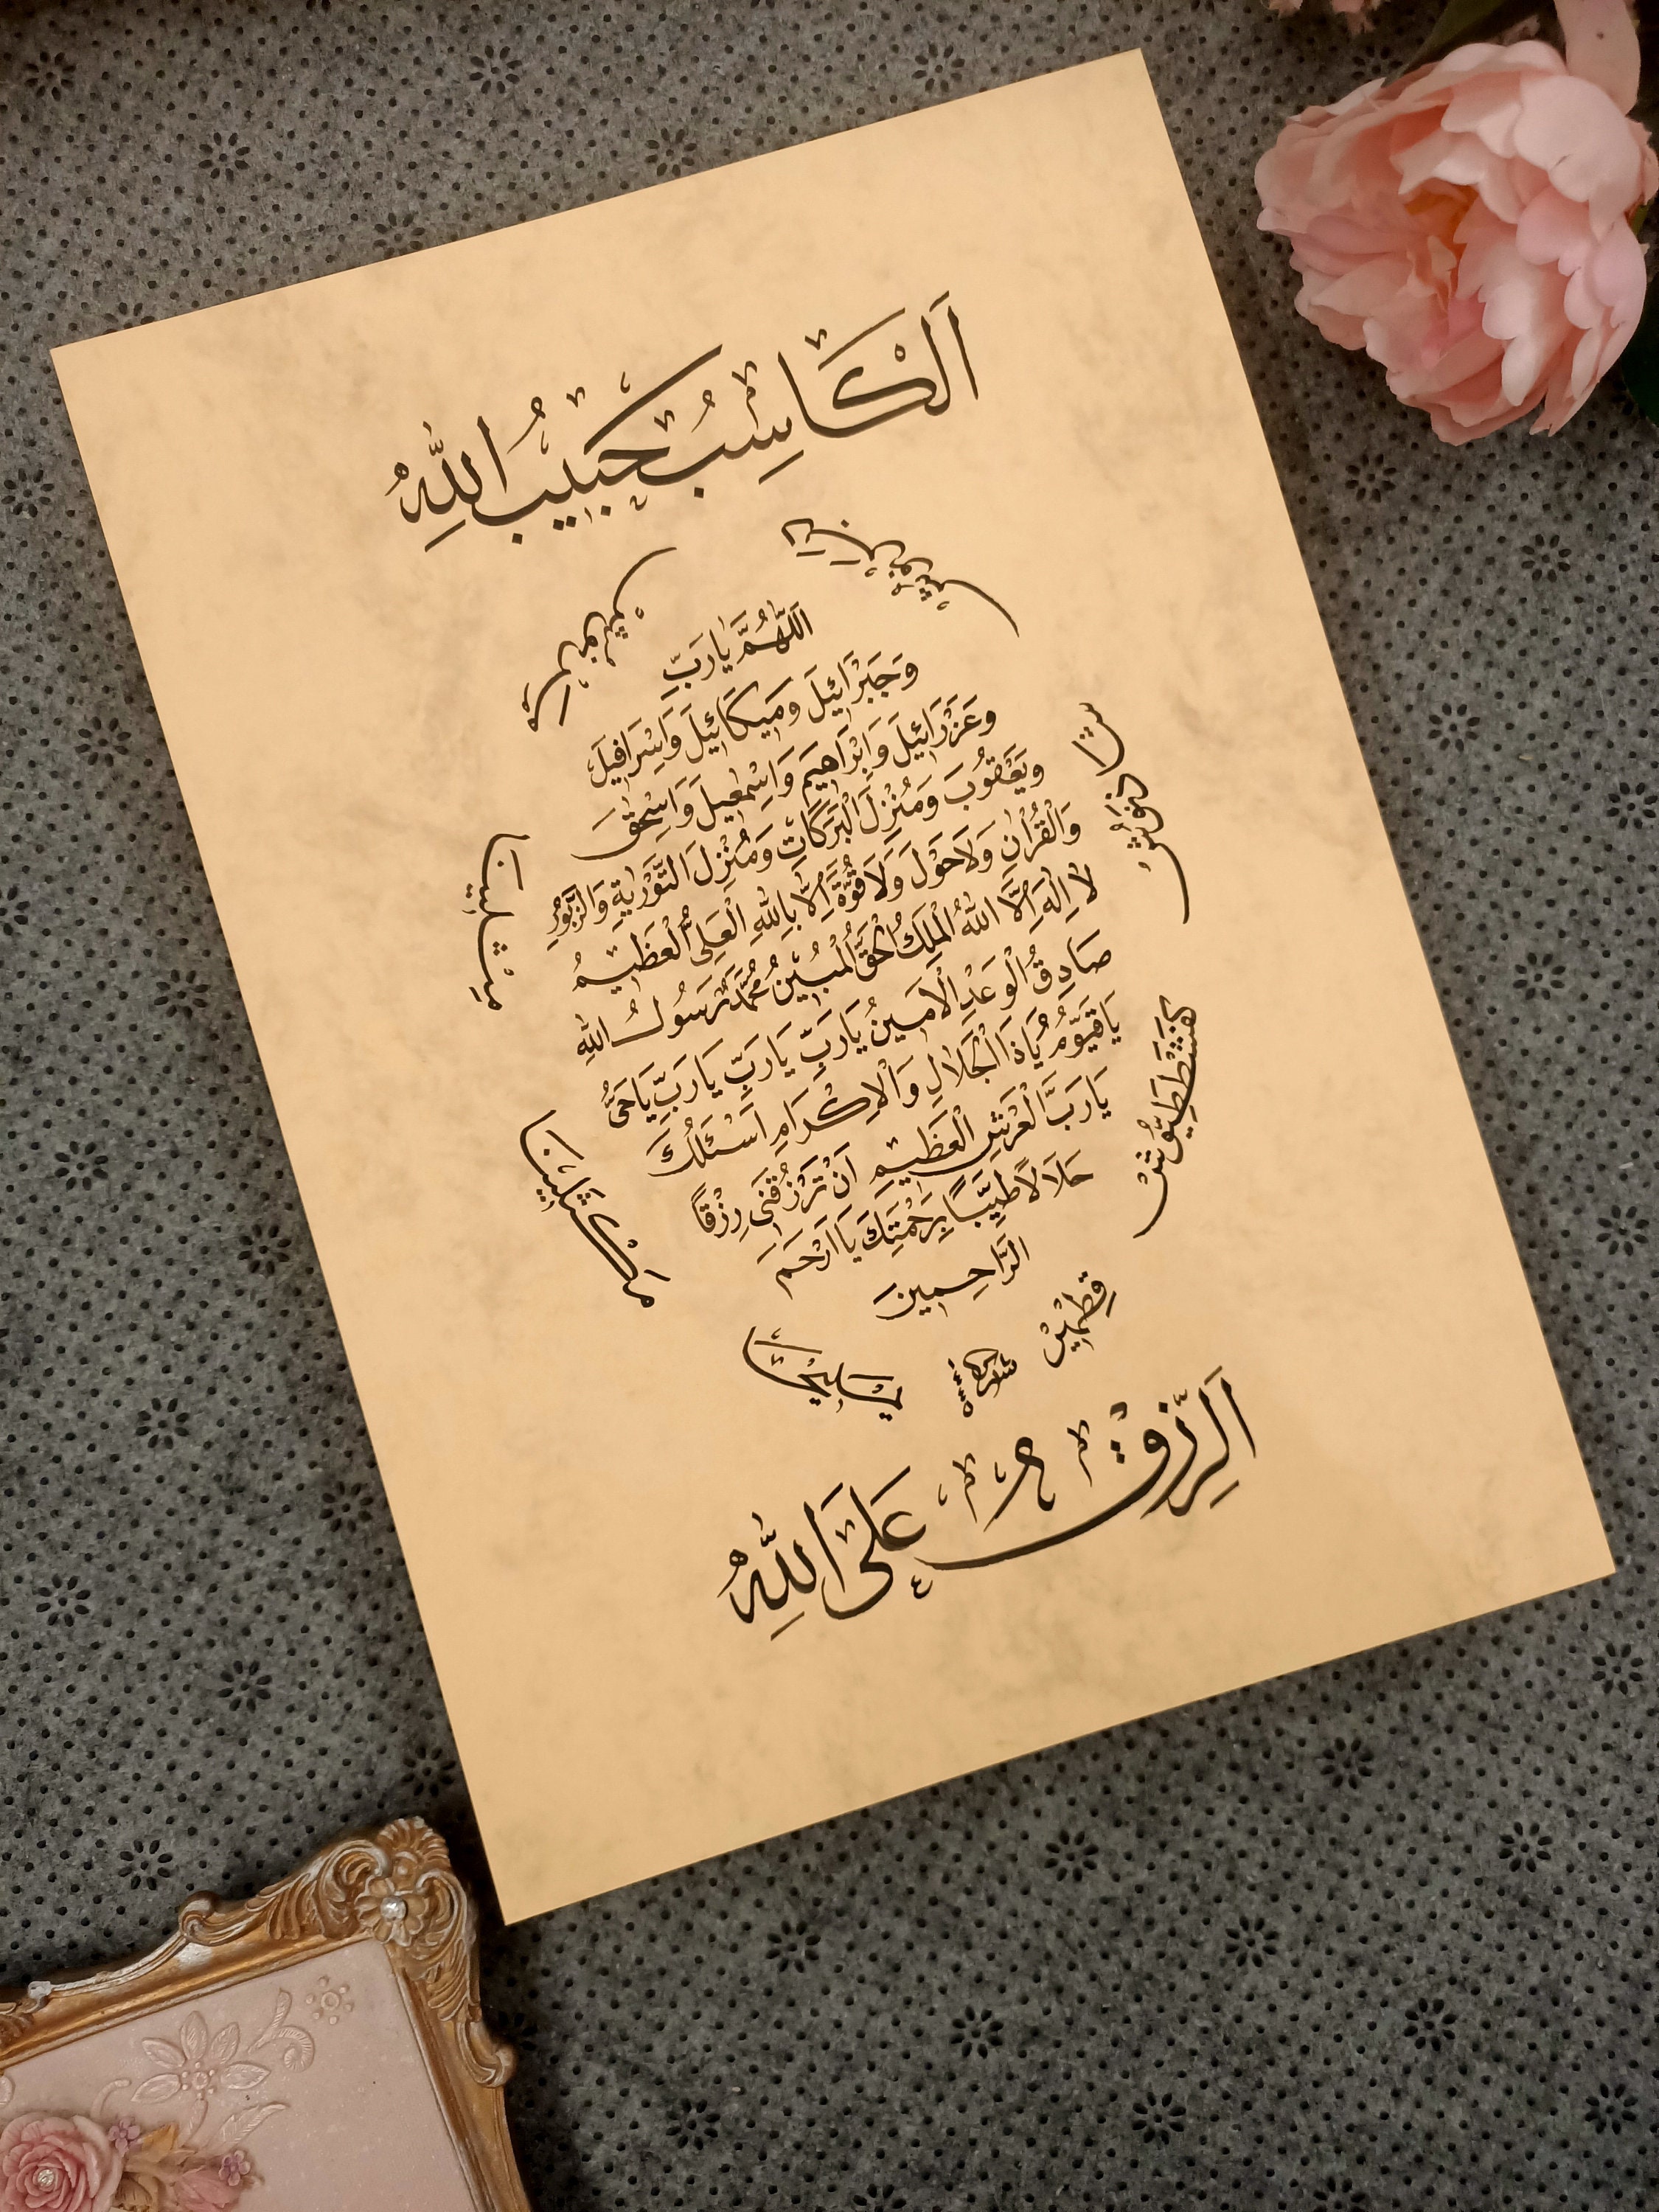 اَلْكَاسِبُ حَبِيبُ اللهِ
بسم الله الرحمن الرحيم
اَللّٰهُمَّ يَارَبِّ
وَجَبْرَائِيلَ وَمِيكَائِيلَ وَاِسْرَافِيلَ
وَعَزْرَائِيلَ وَاِبْرَاهِيمَ وَاِسْمٰعِيلَ وَاِسْحٰقَ
وَيَعْقُوبَ وَمُنْزِلَ الْبَرَكَاتِ وَمُنْزِلَ التَّوْرٰيةِ وَالزَّبُورِ
وَالْقُرْاٰنِ وَلَاحَوْلَ وَلَاقُوَّةَ اِلَّا بِاللهِ الْعَلِىِّ الْعَظِيمُ
لَا اِلٰهَ اِلَّا اللهُ الْمَلِكُ الْحَقُّ الْمُبِينُ مُحَمَّدٌ رَسُولُ اللهِ
صَادِقُ الْوَعْدِ الْاَمِينُ يَارَبِّ يَارَبِّ يَارَبِّ يَاحَىُّ
يَاقَيُّومُ يَاذَا الْجَلَالِ وَالْاِكْرَامِ اَسْئَلُكَ
يَارَبَّ الْعَرْشِ الْعَظِيمِ اَنْ تَرْزُقَنِى رِزْقًا
حَلَالًا طَيِّبًا بِرَحْمَتِكَ يَا اَرْحَمَ
الرَّاحِمِينَ
مِثْلِينَا
مَكْثَلِينَا
قِطْمِيرْ
كَفَشْطَطَيُوشْ
اَلرِّزْقُ عَلَى اللهِ